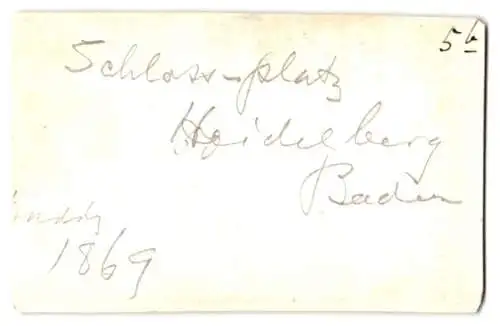 5b
Schloss-platz
Heidelberg
Baden
1869